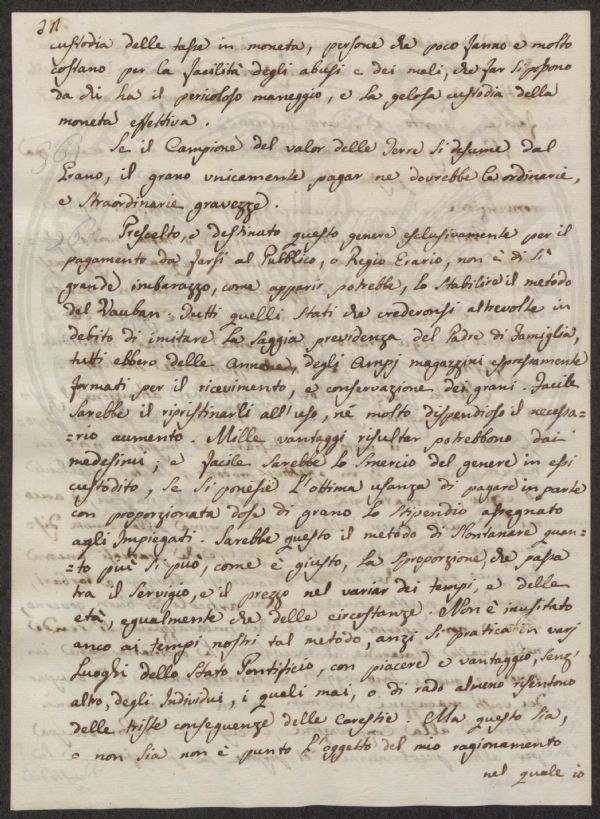 custodia delle tasse in moneta, persone che poco fanno e molto
costano per la facilità degli abusi e dei mali, che far si possono
da chi ha il pericoloso maneggio, e la gelosa custodia della
moneta effettiva.
Se il Campione del valor delle Terre si desume dal
Grano, il grano unicamente pagar ne dovrebbe le ordinarie,
e straordinarie gravezze.
Prescelto, e destinato questo genere esclusivamente per il
pagamento da farsi al Pubblico, o Regio Erario, non è di sì
grande imbarazzo, come apparir potrebbe, lo stabilire il metodo
del Vauban. Tutti quelli Stati che crederonsi altrevolte in
debito di imitare la saggia previdenza del Padre di Famiglia,
tutti ebbero delle Annone, degli ampj magazzini espressamente
formati per il ricevimento, e conservazione dei grani. Facile
sarebbe il ripristinarli all'uso, né molto dispendioso il necessa-
=rio aumento. Mille vantaggi risultar potrebbono dai
medesimi, e facile sarebbe lo smercio del genere in essi
custodito, se si ponesse l'ottima usanza di pagare in parte
con proporzionata dose di grano lo stipendio assegnato
agli Impiegati. Sarebbe questo il metodo di slontanare quan-
=to più si può, come è giusto, la sproporzione, che passa
tra il servigio, e il prezzo nel variar dei tempi, e delle
età, egualmente che delle circostanze. Non è inusitato
anco ai tempi nostri tal metodo, anzi si pratica in varj
Luoghi dello Stato Pontificio, con piacere e vantaggio, senz'
altro, degli Individui, i quali mai, o di rado almeno risentono
delle triste conseguenze delle carestie. Ma questo sia,
o non sia non è punto l'oggetto del mio ragionamento
nel quale io